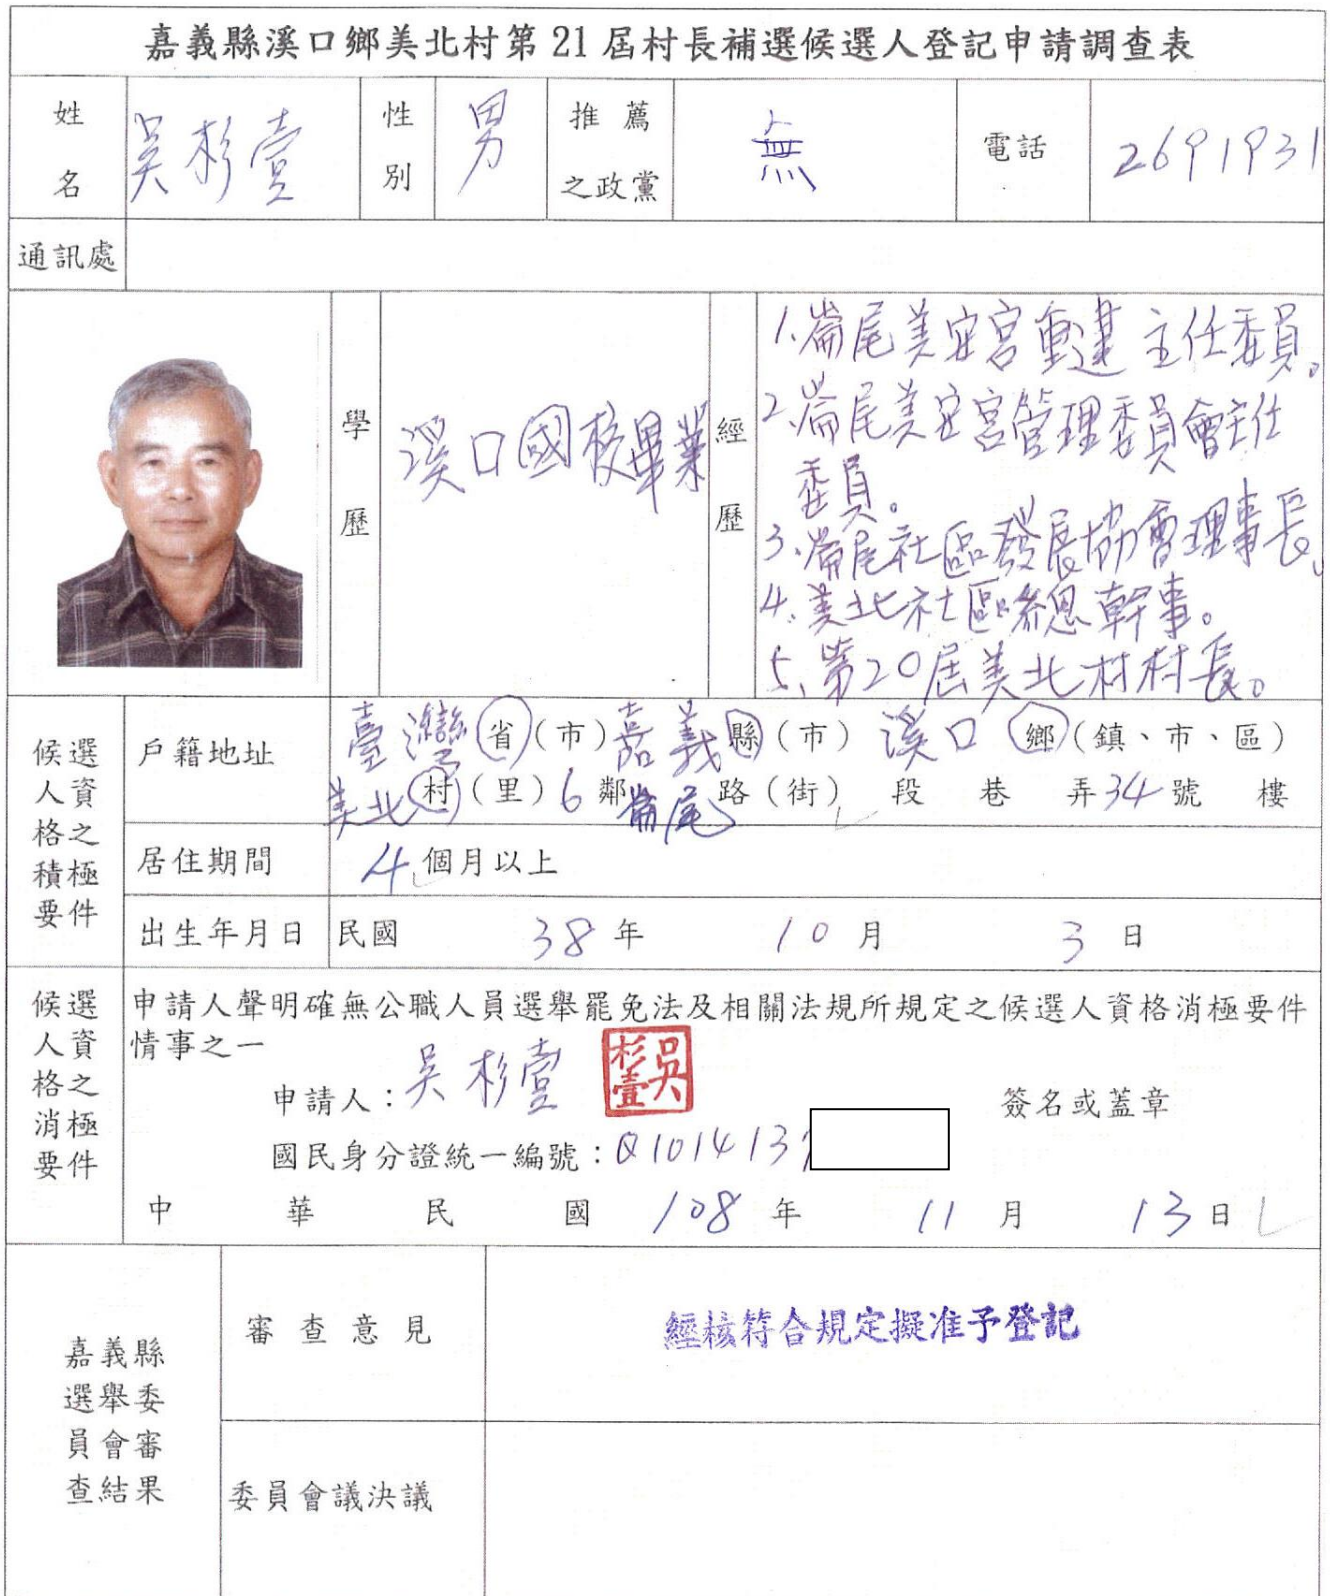 嘉義縣溪口鄉美北村第21屆村長補選候選人登記申請調查表
姓名 吳杉壹 性別 男 推薦之政黨 無 電話 2691931
通訊處
學歷 溪口國校畢業
經歷
1.崙尾美安宮重建主任委員。
2.崙尾美安宮管理委員會主任
委員。
3.崙尾社區發展協會理事長。
4.美北社區總幹事。
5.第20屆美北村村長。
候選人資格之積極要件
戶籍地址 臺灣省(市)嘉義縣(市)溪口鄉(鎮、市、區)
美北村(里)6鄰崙尾路(街)段巷弄34號樓
居住期間 4個月以上
出生年月日 民國38年10月3日
候選人資格之消極要件
申請人聲明確無公職人員選舉罷免法及相關法規所規定之候選人資格消極要件
情事之一
申請人:吳杉壹 吳杉壹 簽名或蓋章
國民身分證統一編號:Q101413
中華民國108年11月13日
嘉義縣選舉委員會審查結果
審查意見 經核符合規定擬准予登記
委員會議決議